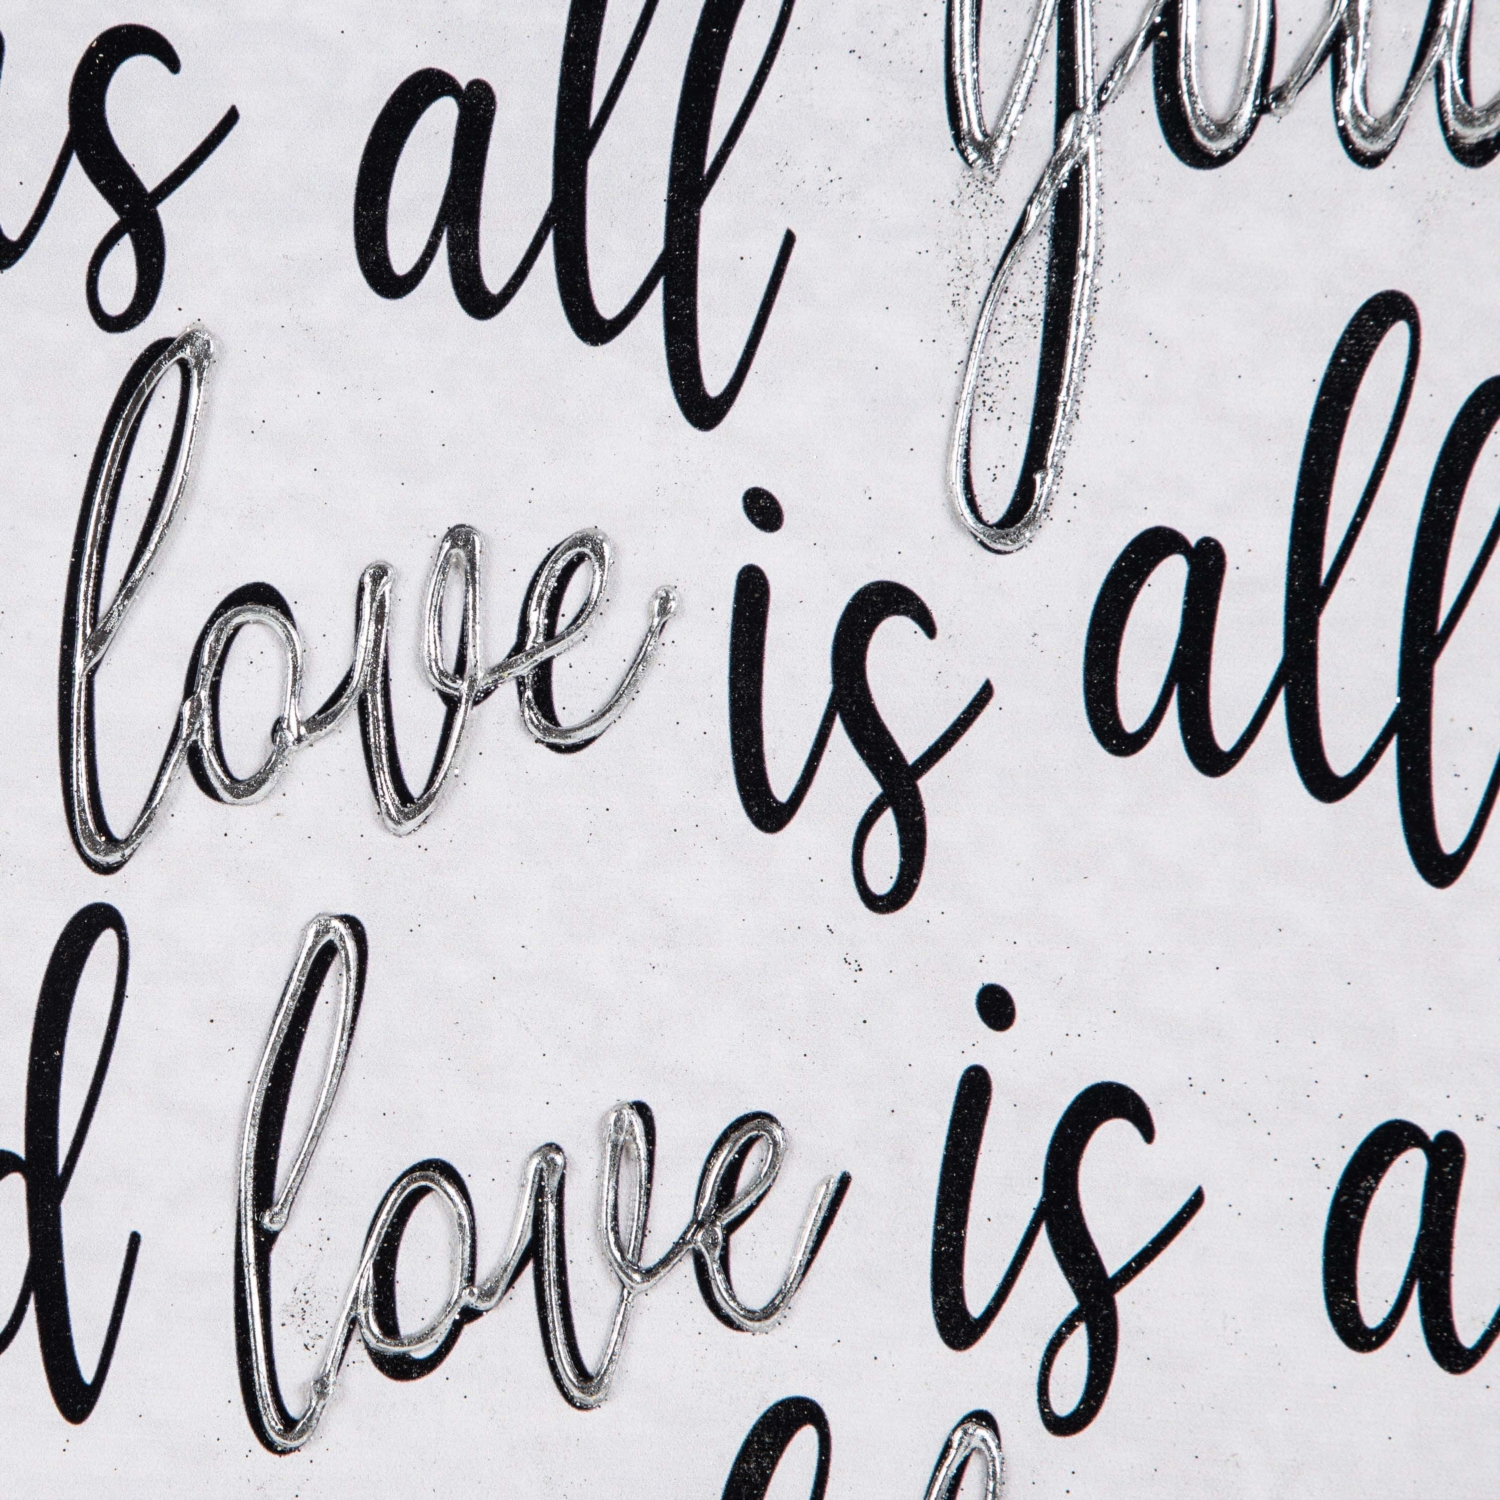 is all you
love is all
love is a